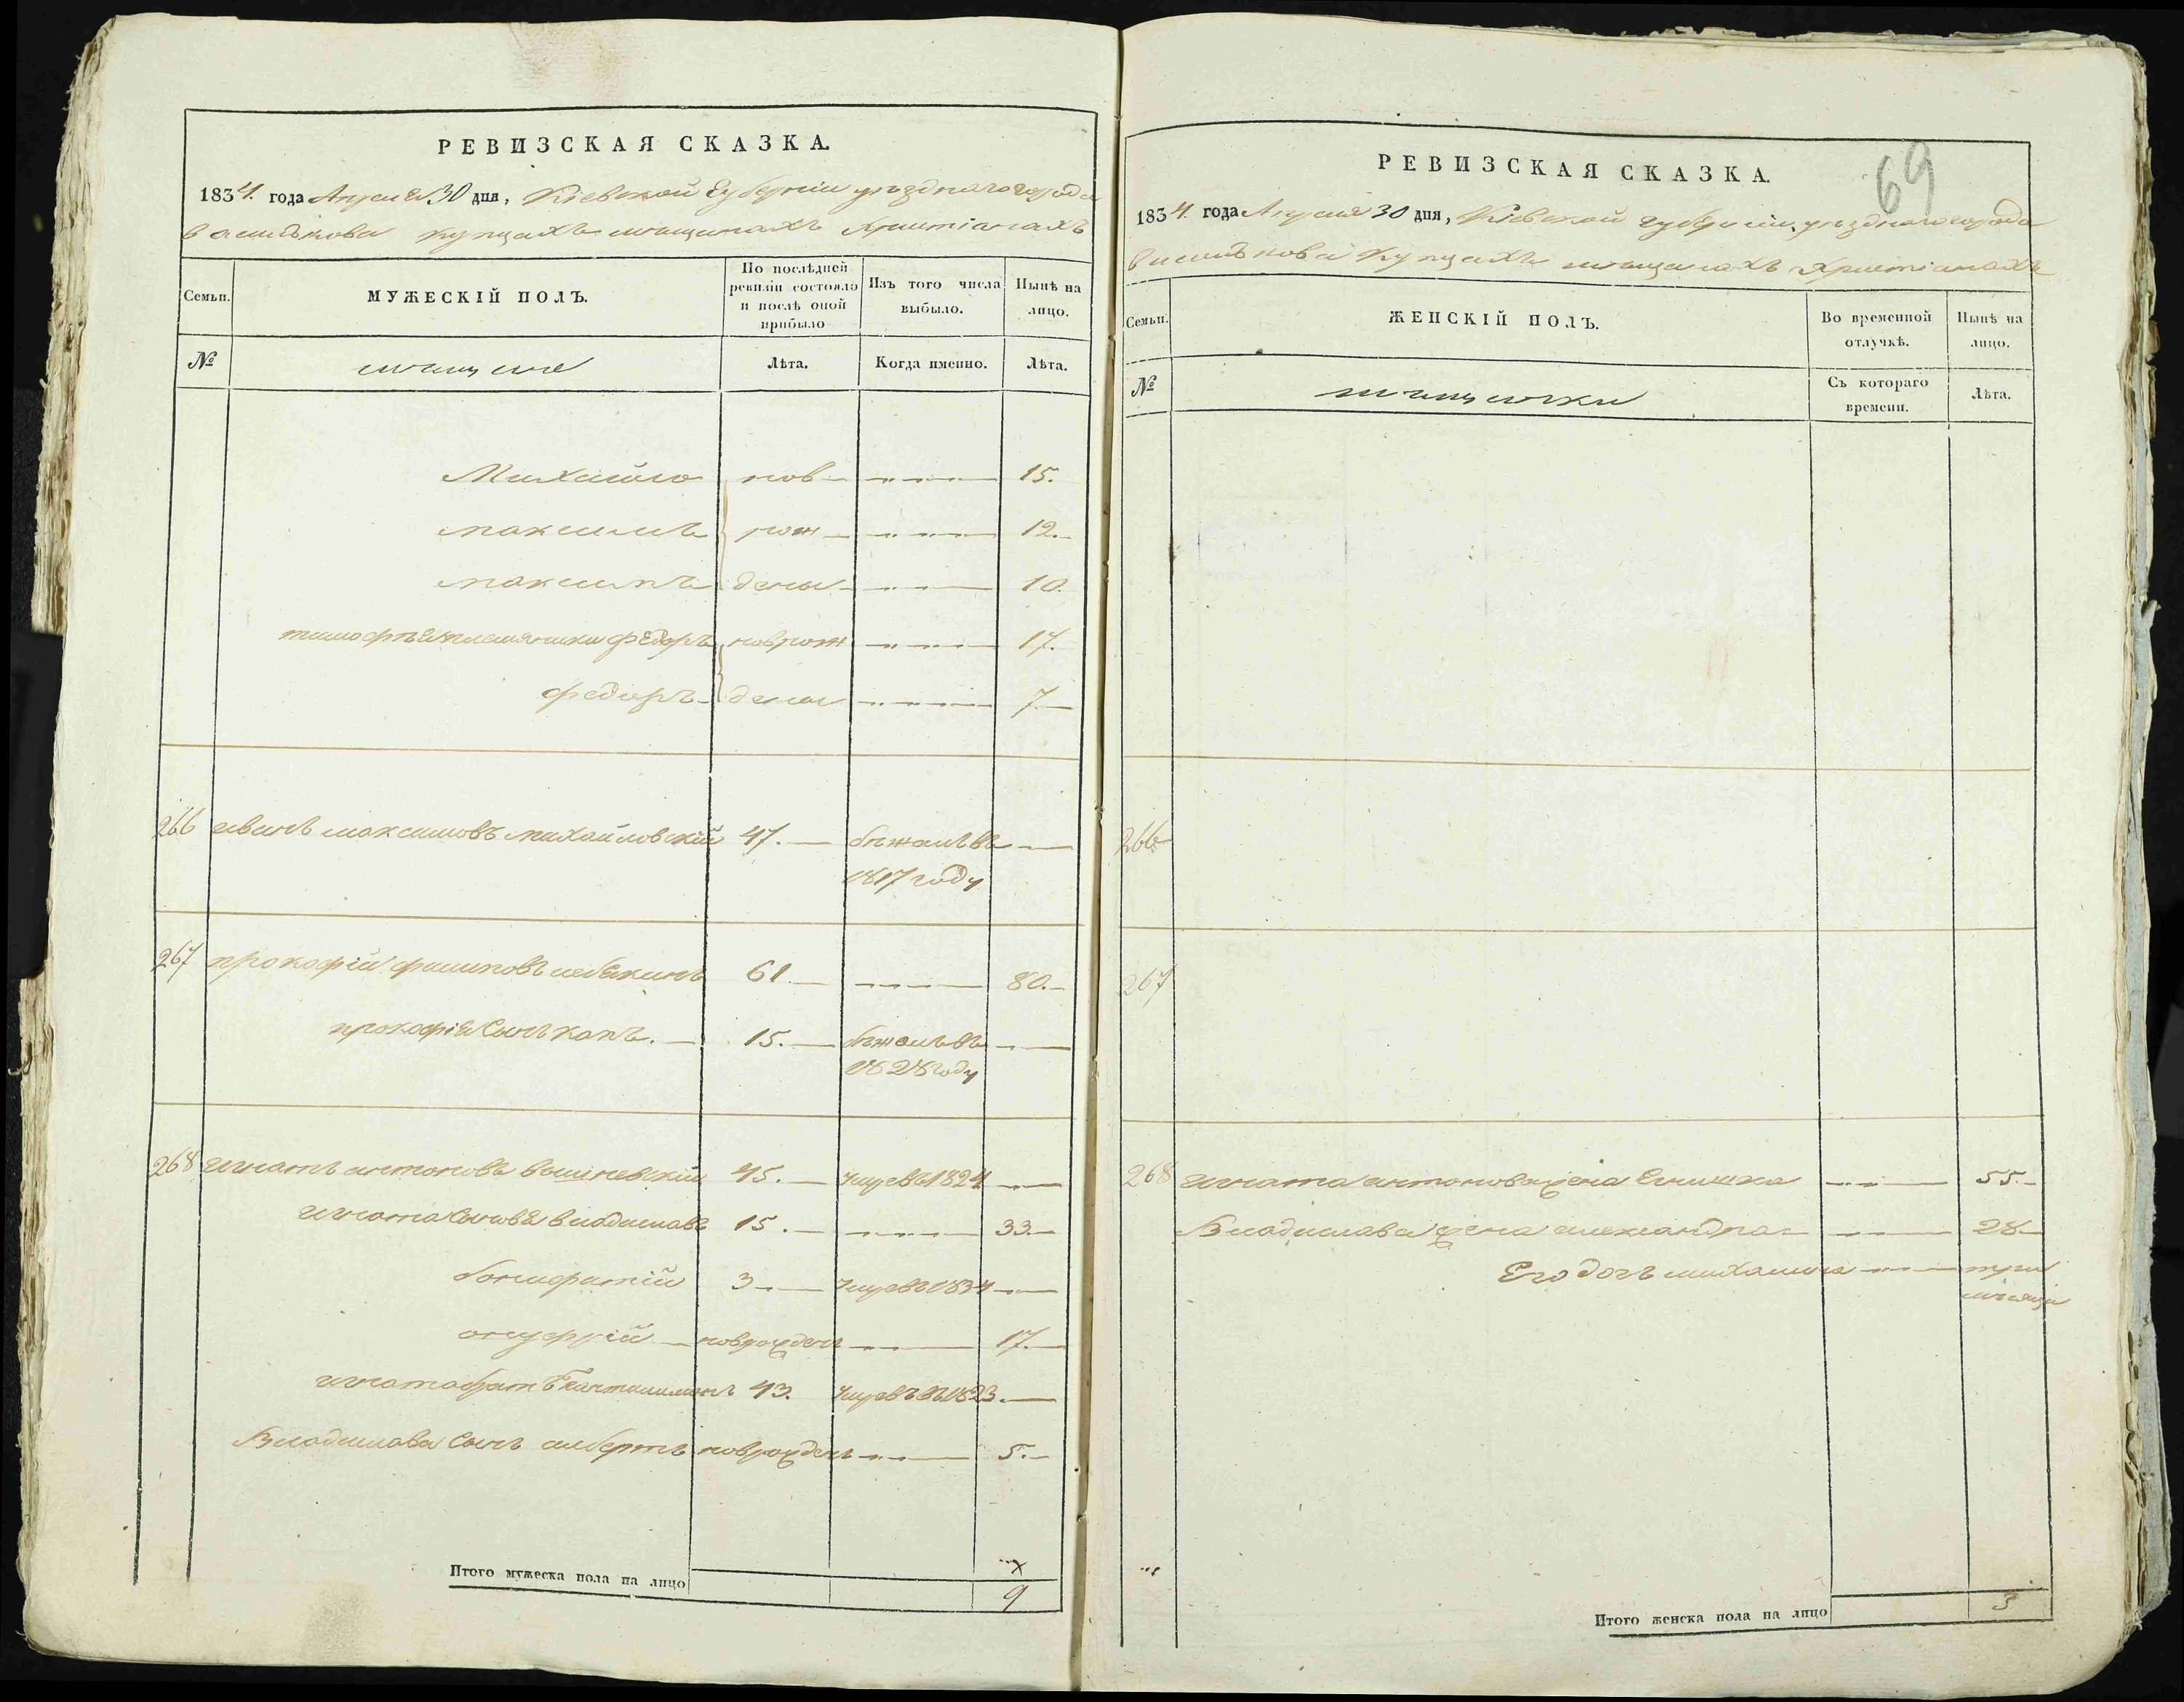 РЕВИЗСКАЯ СКАЗКА.
1834. года Апреля 30 дня, Кіевской Губерніи уѣзднаго города
василькова купцахъ мѣщанахъ Христіанахъ
Семьи.
МУЖЕСКІЙ ПОЛЪ.
По послѣдней ревизіи состояло и послѣ оной прибыло
Изъ того числа выбыло.
Нынѣ на лицо.
№
мѣщане
Лѣта.
Когда именно.
Лѣта.
Михайло нов 15.
максимъ рож 12.
максимъ дены 10.
тимофѣя племянники Федоръ новрож 17.
федоръ дены 7
266 иванъ максимовъ михайловскій 47. бѣжалъ въ
1817 году
267 прокофій 61. 80.
прокофія Сынъ 15. бѣжалъ въ
1828 году
268 игнатъ антоновъ вышневскій 45. умревъ 1824
игната Сыновья владиславъ 15. 33.
бонифатій 3 умревъ 1834
онуфрій новрожденъ 17.
игната братъ 43. умревъ въ 1823
Владислава Сынъ албертъ новрожденъ 5.
Итого мужеска пола на лицо
9
69
РЕВИЗСКАЯ СКАЗКА.
1834. года Апреля 30 дня, Кіевской губерніи уѣзднаго города
василькова Купцахъ мѣщанахъ Христіанахъ
Семьи.
ЖЕНСКІЙ ПОЛЪ.
Во временной отлучкѣ.
Нынѣ на лицо.
№
мѣщанки
Съ котораго времени.
Лѣта.
266
267
268 игната антонова жена 55.
Владислава жена александра 28
Его дочь михалина три
мѣсяца
Итого женска пола на лицо
3